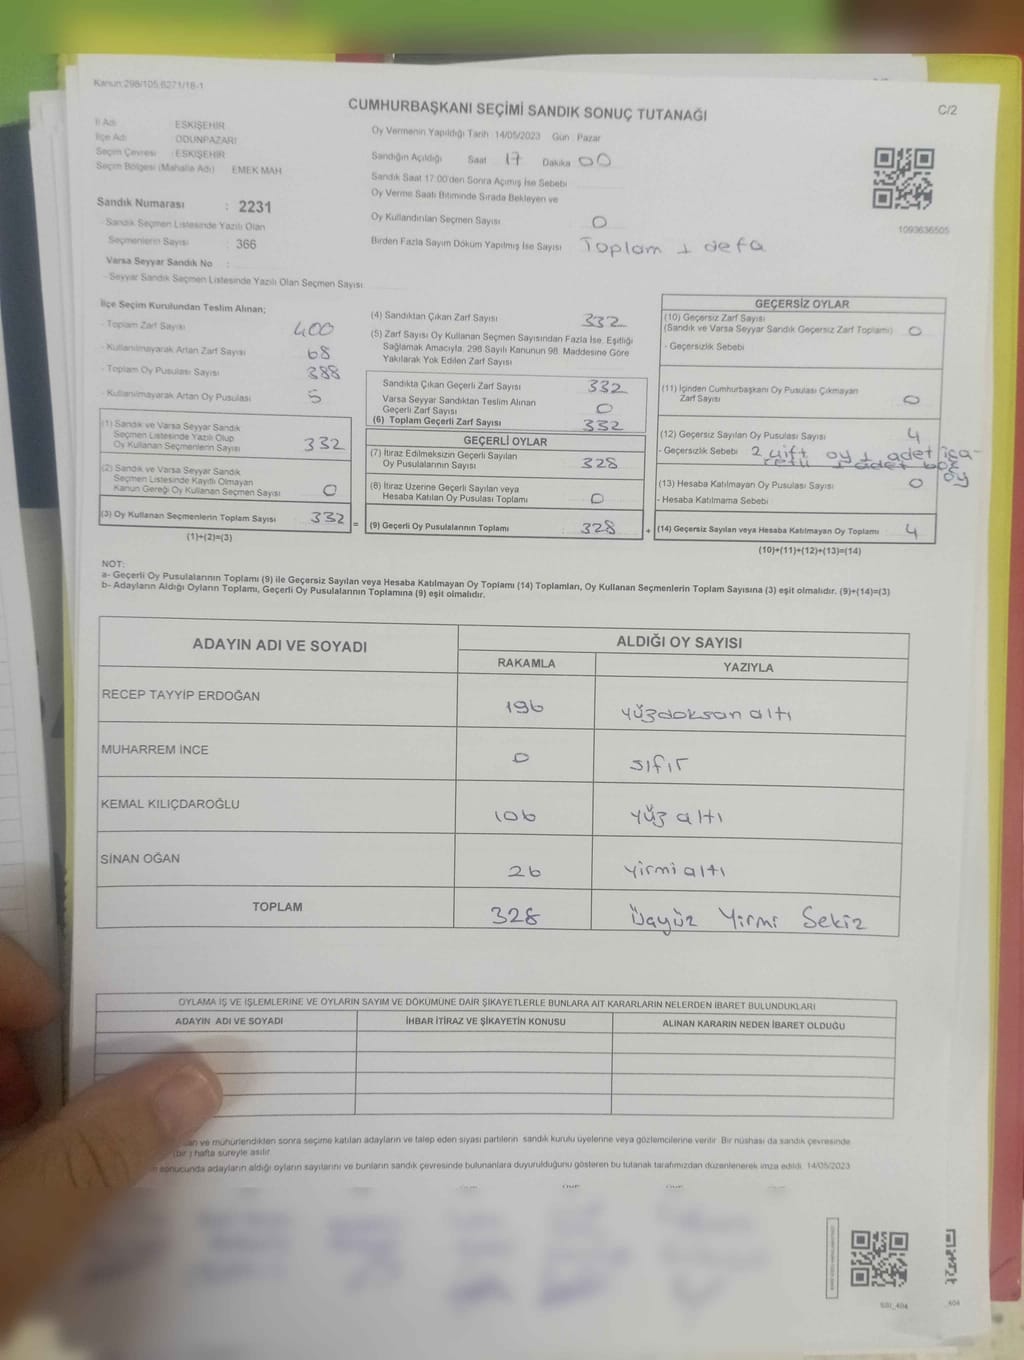 Kanun:298/105,6271/18-1
CUMHURBAŞKANI SEÇİMİ SANDIK SONUÇ TUTANAĞI
C/2
İl Adı ESKİŞEHİR
İlçe Adı ODUNPAZARI
Seçim Çevresi : ESKİŞEHİR
Seçim Bölgesi (Mahalle Adı) EMEK MAH
Oy Vermenin Yapıldığı Tarih 14/05/2023 Gün Pazar
Sandığın Açıldığı Saat 17 Dakika 00
Sandık Saat 17:00'den Sonra Açımış İse Sebebi
Oy Verme Saati Bitiminde Sırada Bekleyen ve
Oy Kullandırılan Seçmen Sayısı 0
Birden Fazla Sayım Döküm Yapılmış İse Sayısı Toplam 1 defa
1093636505
Sandık Numarası : 2231
- Sandık Seçmen Listesinde Yazılı Olan
Seçmenlerin Sayısı : 366
Varsa Seyyar Sandık No :
- Seyyar Sandık Seçmen Listesinde Yazılı Olan Seçmen Sayısı
İlçe Seçim Kurulundan Teslim Alınan;
- Toplam Zarf Sayısı 400
- Kullanılmayarak Artan Zarf Sayısı 68
- Toplam Oy Pusulası Sayısı 388
- Kullanılmayarak Artan Oy Pusulası 5
(1) Sandık ve Varsa Seyyar Sandık
Seçmen Listesinde Yazılı Olup
Oy Kullanan Seçmenlerin Sayısı 332
(2) Sandık ve Varsa Seyyar Sandık
Seçmen Listesinde Kayıtlı Olmayan
Kanun Gereği Oy Kullanan Seçmen Sayısı 0
(3) Oy Kullanan Seçmenlerin Toplam Sayısı 332 =
(1)+(2)=(3)
(4) Sandıktan Çıkan Zarf Sayısı 332
(5) Zarf Sayısı Oy Kullanan Seçmen Sayısından Fazla İse, Eşitliği
Sağlamak Amacıyla, 298 Sayılı Kanunun 98. Maddesine Göre
Yakılarak Yok Edilen Zarf Sayısı
Sandıkta Çıkan Geçerli Zarf Sayısı 332
Varsa Seyyar Sandıktan Teslim Alınan
Geçerli Zarf Sayısı 0
(6) Toplam Geçerli Zarf Sayısı 332
GEÇERLİ OYLAR
(7) İtiraz Edilmeksizin Geçerli Sayılan
Oy Pusulalarının Sayısı 328
(8) İtiraz Üzerine Geçerli Sayılan veya
Hesaba Katılan Oy Pusulası Toplamı 0
(9) Geçerli Oy Pusulalarının Toplamı 328 +
GEÇERSİZ OYLAR
(10) Geçersiz Zarf Sayısı
(Sandık ve Varsa Seyyar Sandık Geçersiz Zarf Toplamı) 0
- Geçersizlik Sebebi
(11) İçinden Cumhurbaşkanı Oy Pusulası Çıkmayan
Zarf Sayısı 0
(12) Geçersiz Sayılan Oy Pusulası Sayısı 4
- Geçersizlik Sebebi 2 çift oy 1 adet işa-
retli 1 adet boş
oy
(13) Hesaba Katılmayan Oy Pusulası Sayısı 0
- Hesaba Katılmama Sebebi
(14) Geçersiz Sayılan veya Hesaba Katılmayan Oy Toplamı 4
(10)+(11)+(12)+(13)=(14)
NOT:
a- Geçerli Oy Pusulalarının Toplamı (9) ile Geçersiz Sayılan veya Hesaba Katılmayan Oy Toplamı (14) Toplamları, Oy Kullanan Seçmenlerin Toplam Sayısına (3) eşit olmalıdır. (9)+(14)=(3)
b- Adayların Aldığı Oyların Toplamı, Geçerli Oy Pusulalarının Toplamına (9) eşit olmalıdır.
ADAYIN ADI VE SOYADI
ALDIĞI OY SAYISI
RAKAMLA YAZIYLA
RECEP TAYYİP ERDOĞAN 196 yüzdoksan altı
MUHARREM İNCE 0 sıfır
KEMAL KILIÇDAROĞLU 106 yüz altı
SİNAN OĞAN 26 yirmi altı
TOPLAM 328 Üçyüz Yirmi Sekiz
OYLAMA İŞ VE İŞLEMLERİNE VE OYLARIN SAYIM VE DÖKÜMÜNE DAİR ŞİKAYETLERLE BUNLARA AİT KARARLARIN NELERDEN İBARET BULUNDUKLARI
ADAYIN ADI VE SOYADI İHBAR İTİRAZ VE ŞİKAYETİN KONUSU ALINAN KARARIN NEDEN İBARET OLDUĞU
ve mühürlendikten sonra seçime katılan adayların ve talep eden siyasi partilerin sandık kurulu üyelerine veya gözlemcilerine verilir. Bir nüshası da sandık çevresinde
(bir) hafta süreyle asılır.
sonucunda adayların aldığı oyların sayılarını ve bunların sandık çevresinde bulunanlara duyurulduğunu gösteren bu tutanak tarafımızdan düzenlenerek imza edildi. 14/05/2023